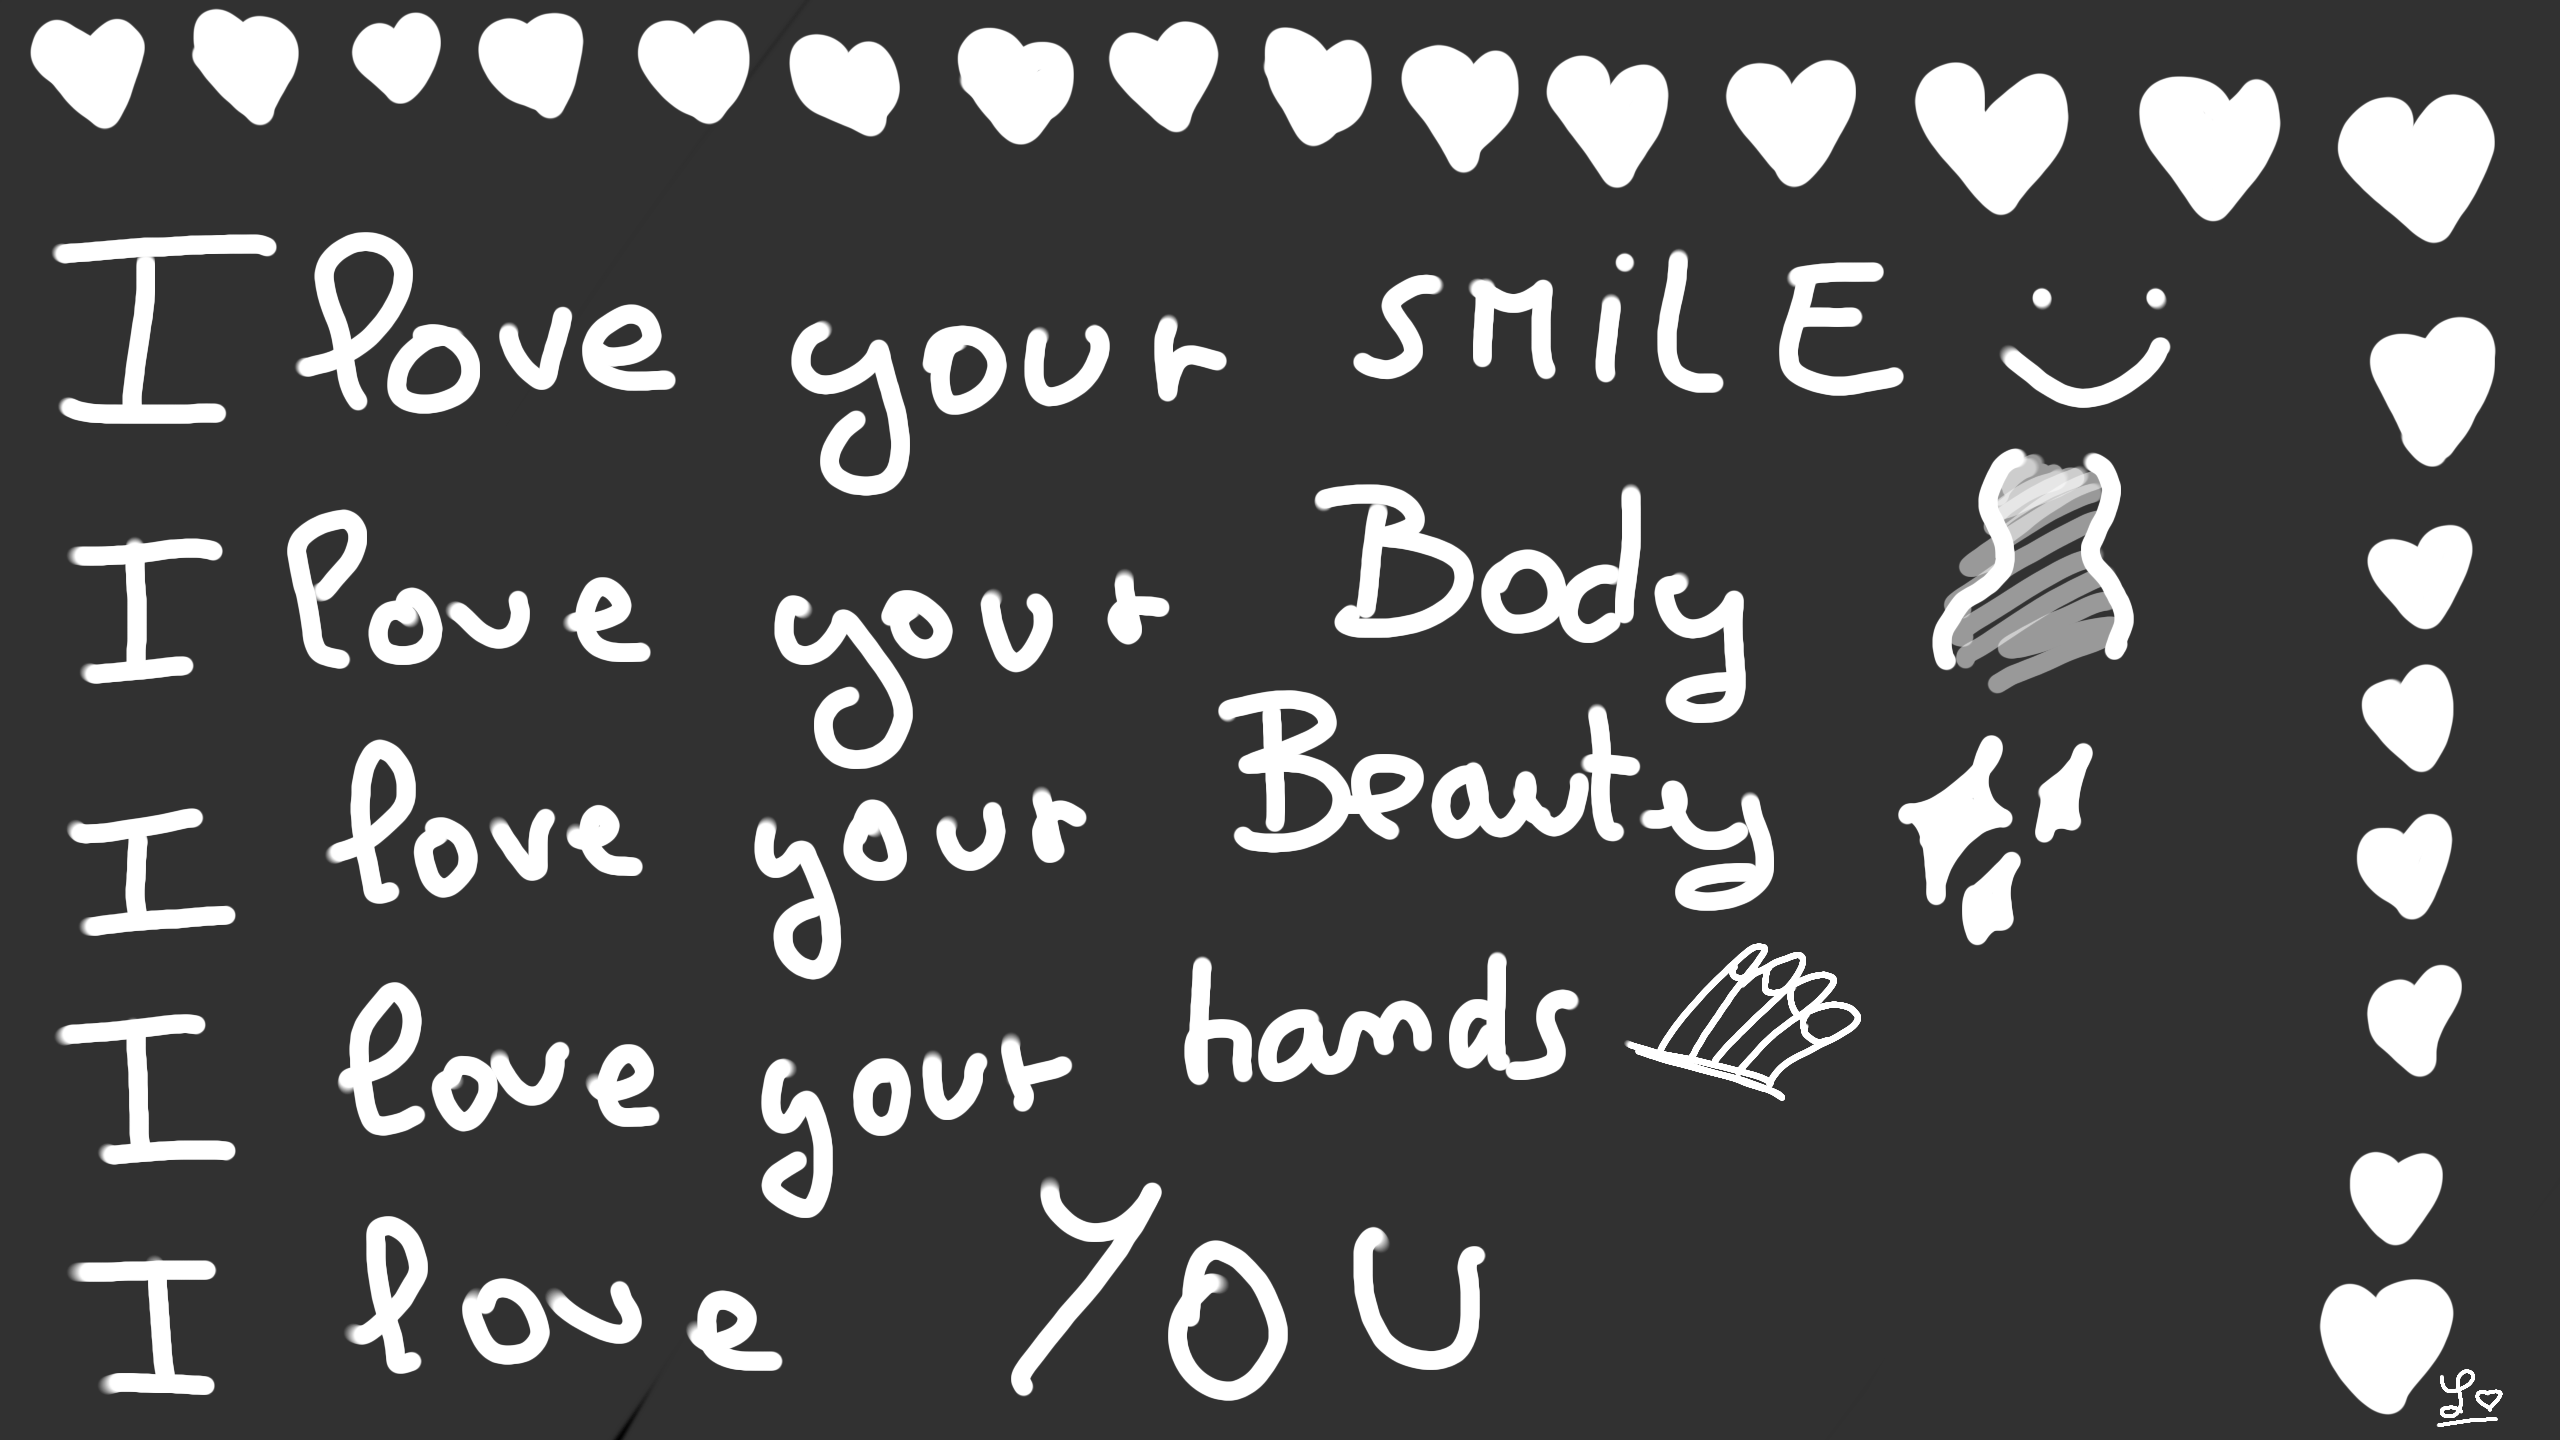 I love your SMiLE
I love your Body
I love your Beauty
I love your hands
I love YOU
L